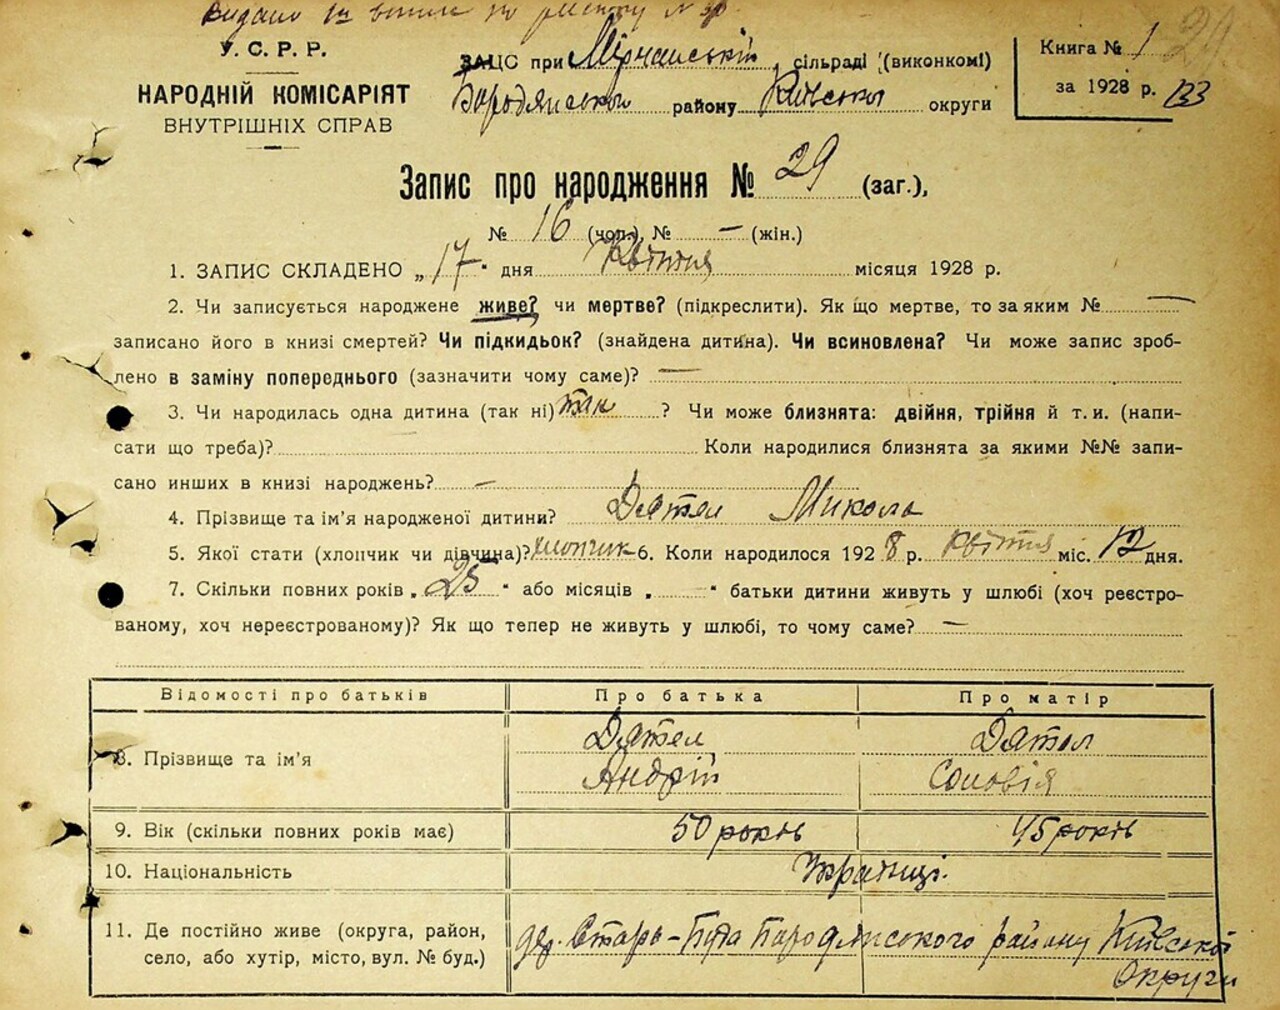 Видано
У. С. Р. Р.
НАРОДНІЙ КОМІСАРІЯТ
ВНУТРІШНІХ СПРАВ
ЗАЦС при Мірчанській сільраді (виконкомі)
Бородянського району Київської округи
Книга № 1 29
за 1928 р. 133
Запис про народження № 29 (заг.),
№ 16 (чол.), № — (жін.)
1. ЗАПИС СКЛАДЕНО „17“ дня Квітня місяця 1928 р.
2. Чи записується народжене живе? чи мертве? (підкреслити). Як що мертве, то за яким № —
записано його в книзі смертей? Чи підкидьок? (знайдена дитина). Чи всиновлена? Чи може запис зроб-
лено в заміну попереднього (зазначити чому саме)? —
3. Чи народилась одна дитина (так ні) так ? Чи може близнята: двійня, трійня й т. и. (напи-
сати що треба)? Коли народилися близнята за якими №№ запи-
сано инших в книзі народжень? —
4. Прізвище та ім'я народженої дитини? Дятел Микола
5. Якої стати (хлопчик чи дівчина)? хлопчик 6. Коли народилося 1928 р. квітня міс. 12 дня.
7. Скільки повних років „25“ або місяців „ “ батьки дитини живуть у шлюбі (хоч реєстро-
ваному, хоч нереєстрованому)? Як що тепер не живуть у шлюбі, то чому саме? —
Відомості про батьків Про батька Про матір
8. Прізвище та ім'я Дятел Андрій Дятел Соловія
9. Вік (скільки повних років має) 50 років 45 років
10. Національність Українці.
11. Де постійно живе (округа, район, дер. Стара-Буда Бородянського району Київської
село, або хутір, місто, вул. № буд.) Округи